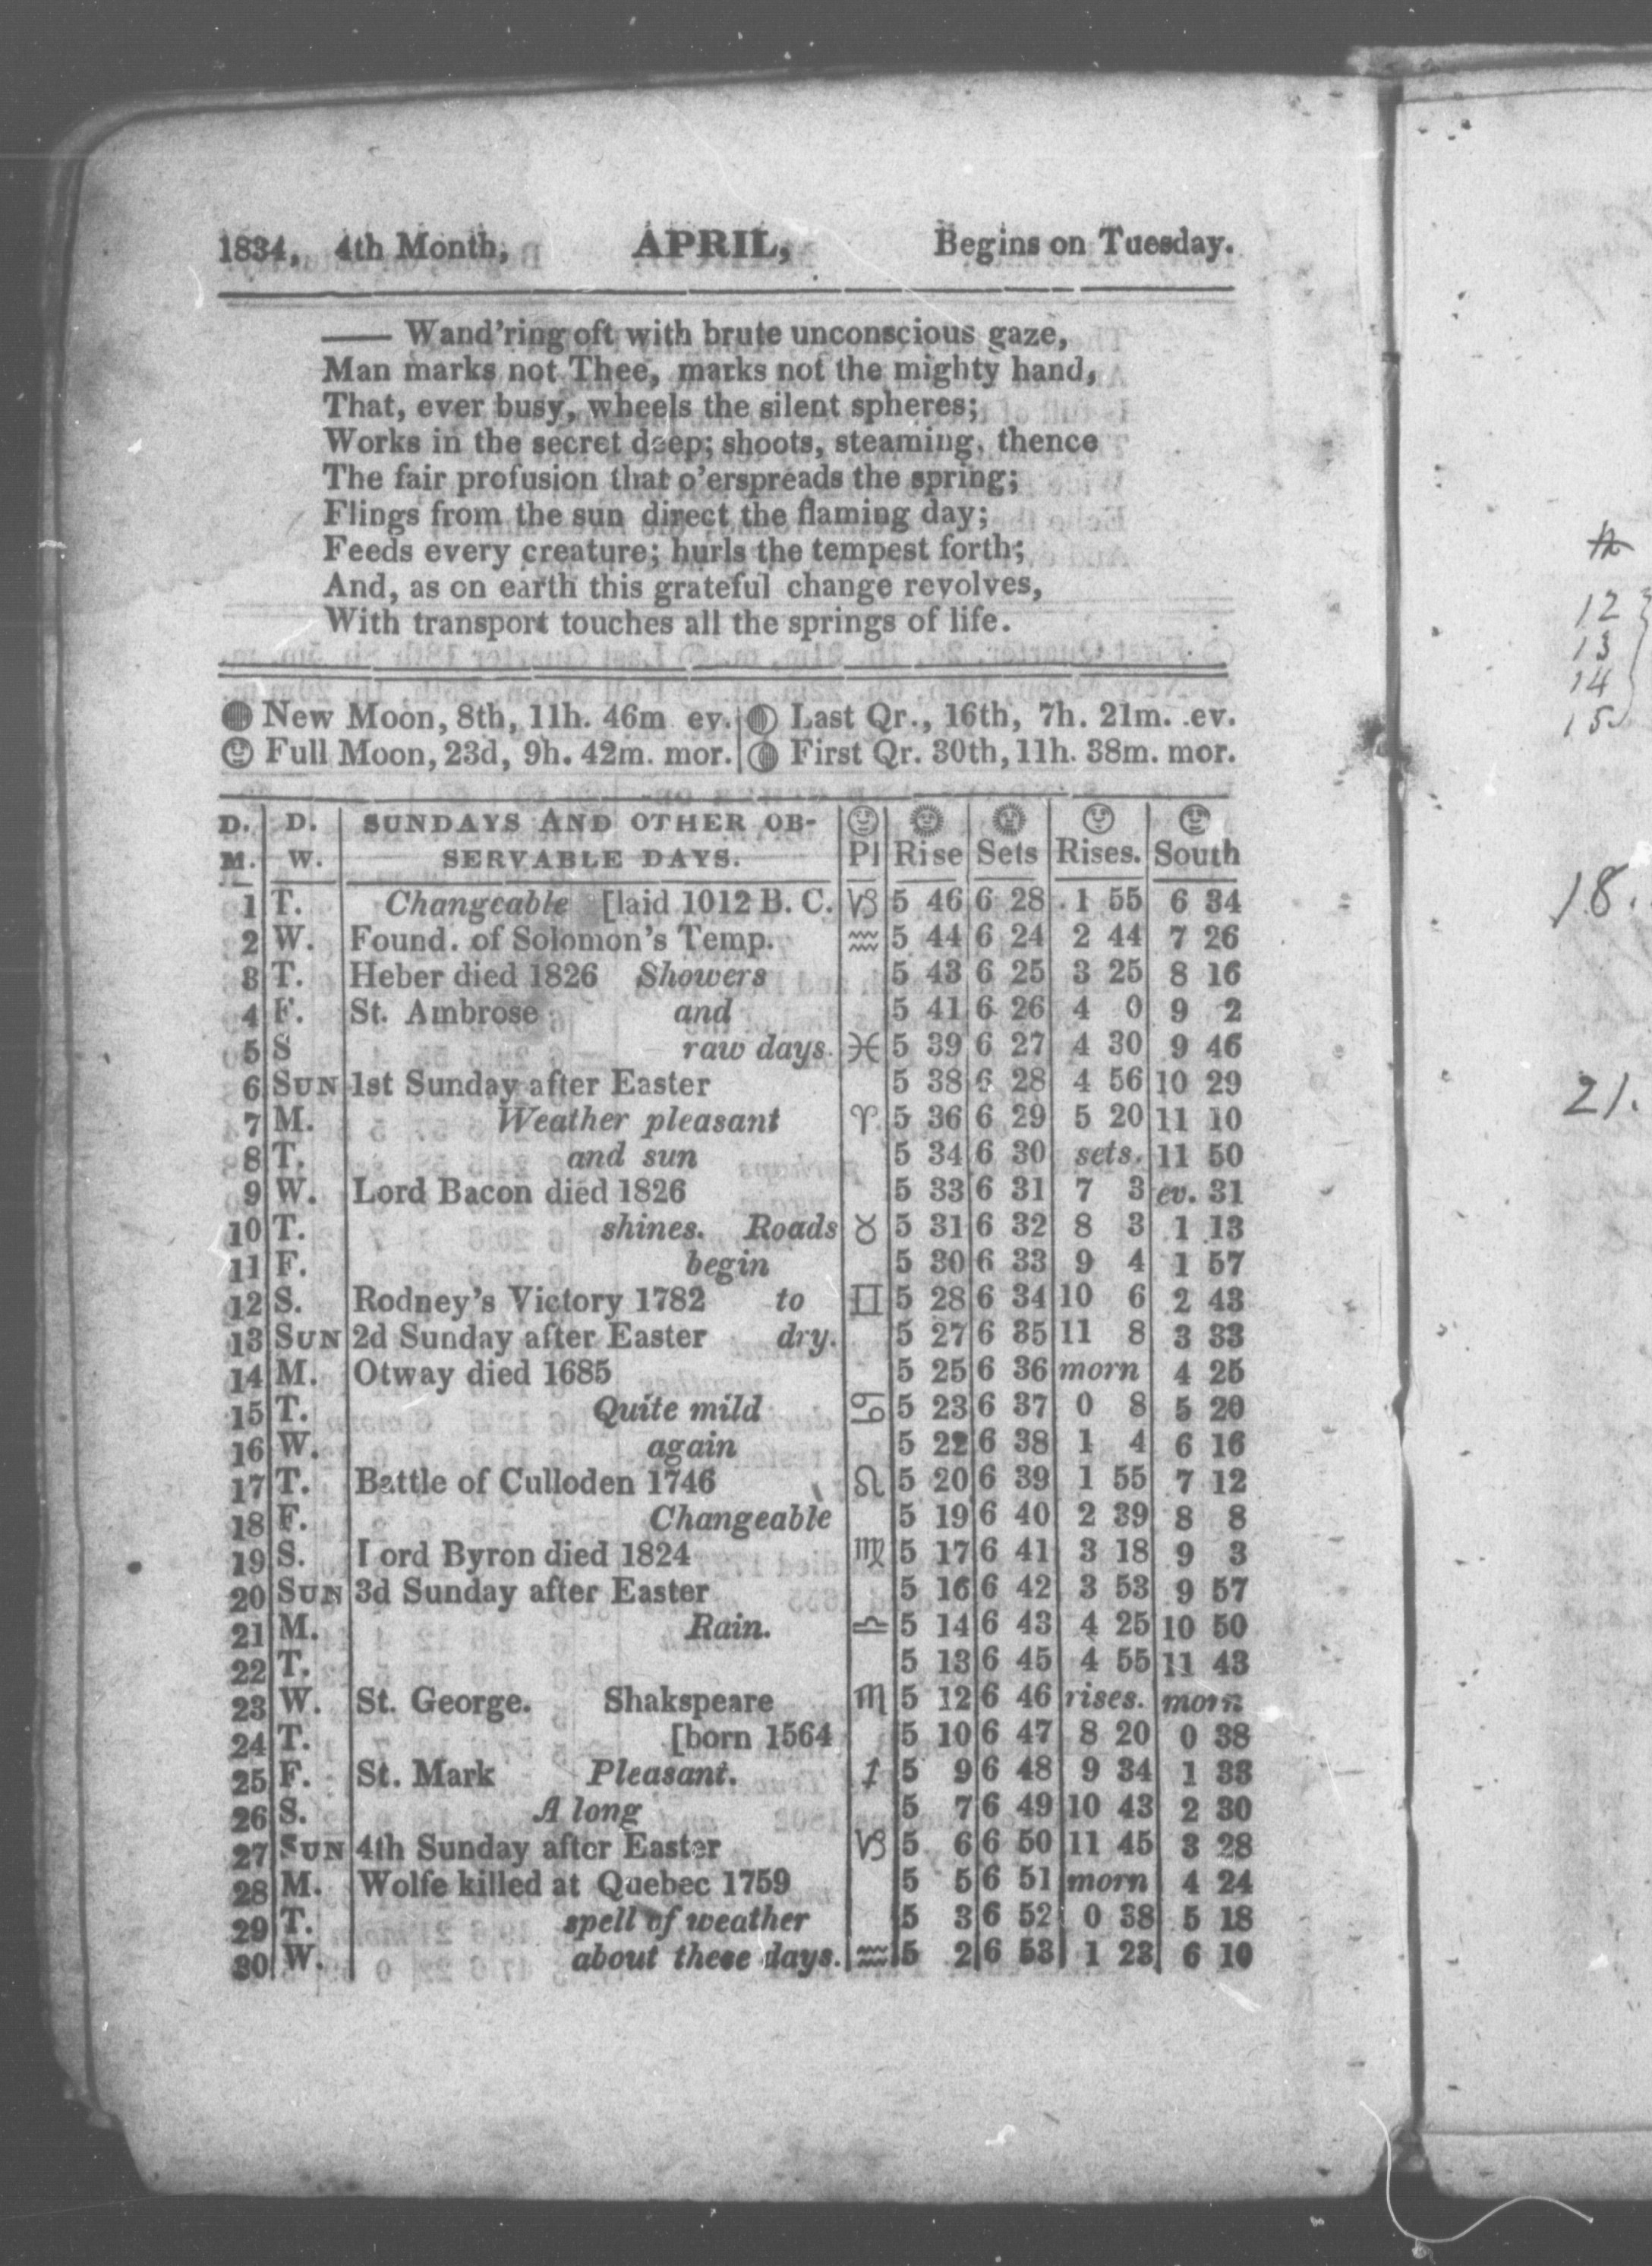 1834, 4th Month, APRIL, Begins on Tuesday.
—— Wand'ring oft with brute unconscious gaze,
Man marks not Thee, marks not the mighty hand,
That, ever busy, wheels the silent spheres;
Works in the secret deep; shoots, steaming, thence
The fair profusion that o'erspreads the spring;
Flings from the sun direct the flaming day;
Feeds every creature; hurls the tempest forth;
And, as on earth this grateful change revolves,
With transport touches all the springs of life.
New Moon, 8th, 11h. 46m ev. Last Qr., 16th, 7h. 21m. ev.
Full Moon, 23d, 9h. 42m. mor. First Qr. 30th, 11h. 38m. mor.
D. D. SUNDAYS AND OTHER OB-
M. W. SERVABLE DAYS. Pl Rise Sets Rises. South
1 T. Changeable [laid 1012 B. C. ♑ 5 46 6 28 1 55 6 34
2 W. Found. of Solomon's Temp. ♒ 5 44 6 24 2 44 7 26
3 T. Heber died 1826 Showers 5 43 6 25 3 25 8 16
4 F. St. Ambrose and 5 41 6 26 4 0 9 2
5 S raw days. ♓ 5 39 6 27 4 30 9 46
6 SUN 1st Sunday after Easter 5 38 6 28 4 56 10 29
7 M. Weather pleasant ♈ 5 36 6 29 5 20 11 10
8 T. and sun 5 34 6 30 sets. 11 50
9 W. Lord Bacon died 1826 5 33 6 31 7 3 ev. 31
10 T. shines. Roads ♉ 5 31 6 32 8 3 1 13
11 F. begin 5 30 6 33 9 4 1 57
12 S. Rodney's Victory 1782 to ♊ 5 28 6 34 10 6 2 43
13 SUN 2d Sunday after Easter dry. 5 27 6 35 11 8 3 33
14 M. Otway died 1685 5 25 6 36 morn 4 25
15 T. Quite mild ♋ 5 23 6 37 0 8 5 20
16 W. again 5 22 6 38 1 4 6 16
17 T. Battle of Culloden 1746 ♌ 5 20 6 39 1 55 7 12
18 F. Changeable 5 19 6 40 2 39 8 8
19 S. Lord Byron died 1824 ♍ 5 17 6 41 3 18 9 3
20 SUN 3d Sunday after Easter 5 16 6 42 3 53 9 57
21 M. Rain. ♎ 5 14 6 43 4 25 10 50
22 T. 5 13 6 45 4 55 11 43
23 W. St. George. Shakspeare ♏ 5 12 6 46 rises. morn
24 T. [born 1564 5 10 6 47 8 20 0 38
25 F. St. Mark Pleasant. ♐ 5 9 6 48 9 34 1 33
26 S. A long 5 7 6 49 10 43 2 30
27 SUN 4th Sunday after Easter ♑ 5 6 6 50 11 45 3 28
28 M. Wolfe killed at Quebec 1759 5 5 6 51 morn 4 24
29 T. spell of weather 5 3 6 52 0 38 5 18
30 W. about these days. ♒ 5 2 6 53 1 23 6 10
12
13
14
15
18.
21.